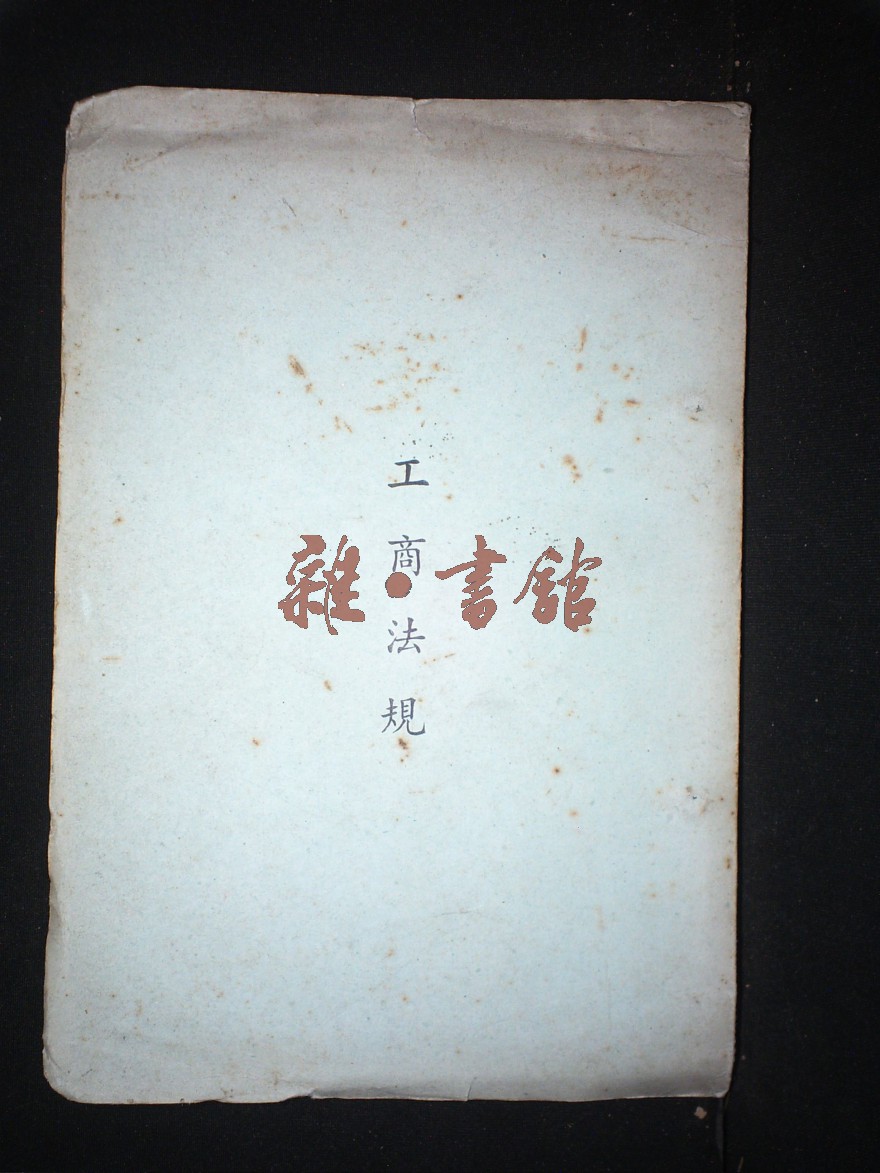 工商法規
雜·書館